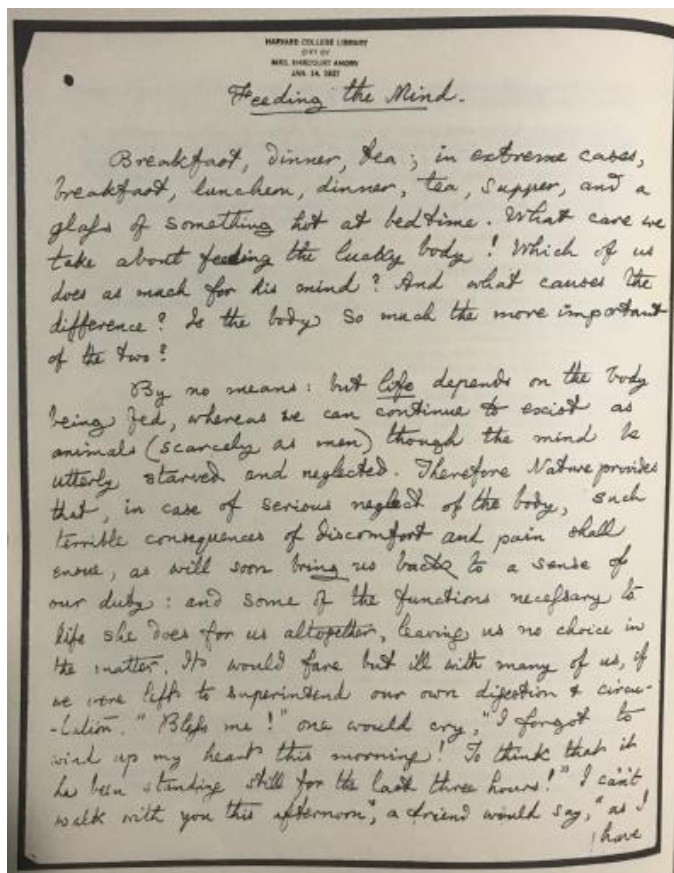 HARVARD COLLEGE LIBRARY
GIFT OF
MRS. HARCOURT AMORY
JAN. 14, 1927
Feeding the Mind.
Breakfast, dinner, tea ; in extreme cases,
breakfast, luncheon, dinner, tea, supper, and a
glass of something hot at bedtime. What care we
take about feeding the lucky body ! Which of us
does as much for his mind ? And what causes the
difference ? Is the body so much the more important
of the two ?
By no means : but life depends on the body
being fed, whereas we can continue to exist as
animals (scarcely as men) though the mind be
utterly starved and neglected. Therefore Nature provides
that, in case of serious neglect of the body, such
terrible consequences of discomfort and pain shall
ensue, as will soon bring us back to a sense of
our duty : and some of the functions necessary to
life she does for us altogether, leaving us no choice in
the matter. It would fare but ill with many of us, if
we were left to superintend our own digestion & circu-
-lation. "Bless me !" one would cry, "I forgot to
wind up my heart this morning ! To think that it
has been standing still for the last three hours !" "I can't
walk with you this afternoon", a friend would say, "as I
have